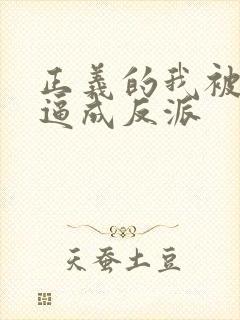 正義的我被
逼成反派
天蚕土豆